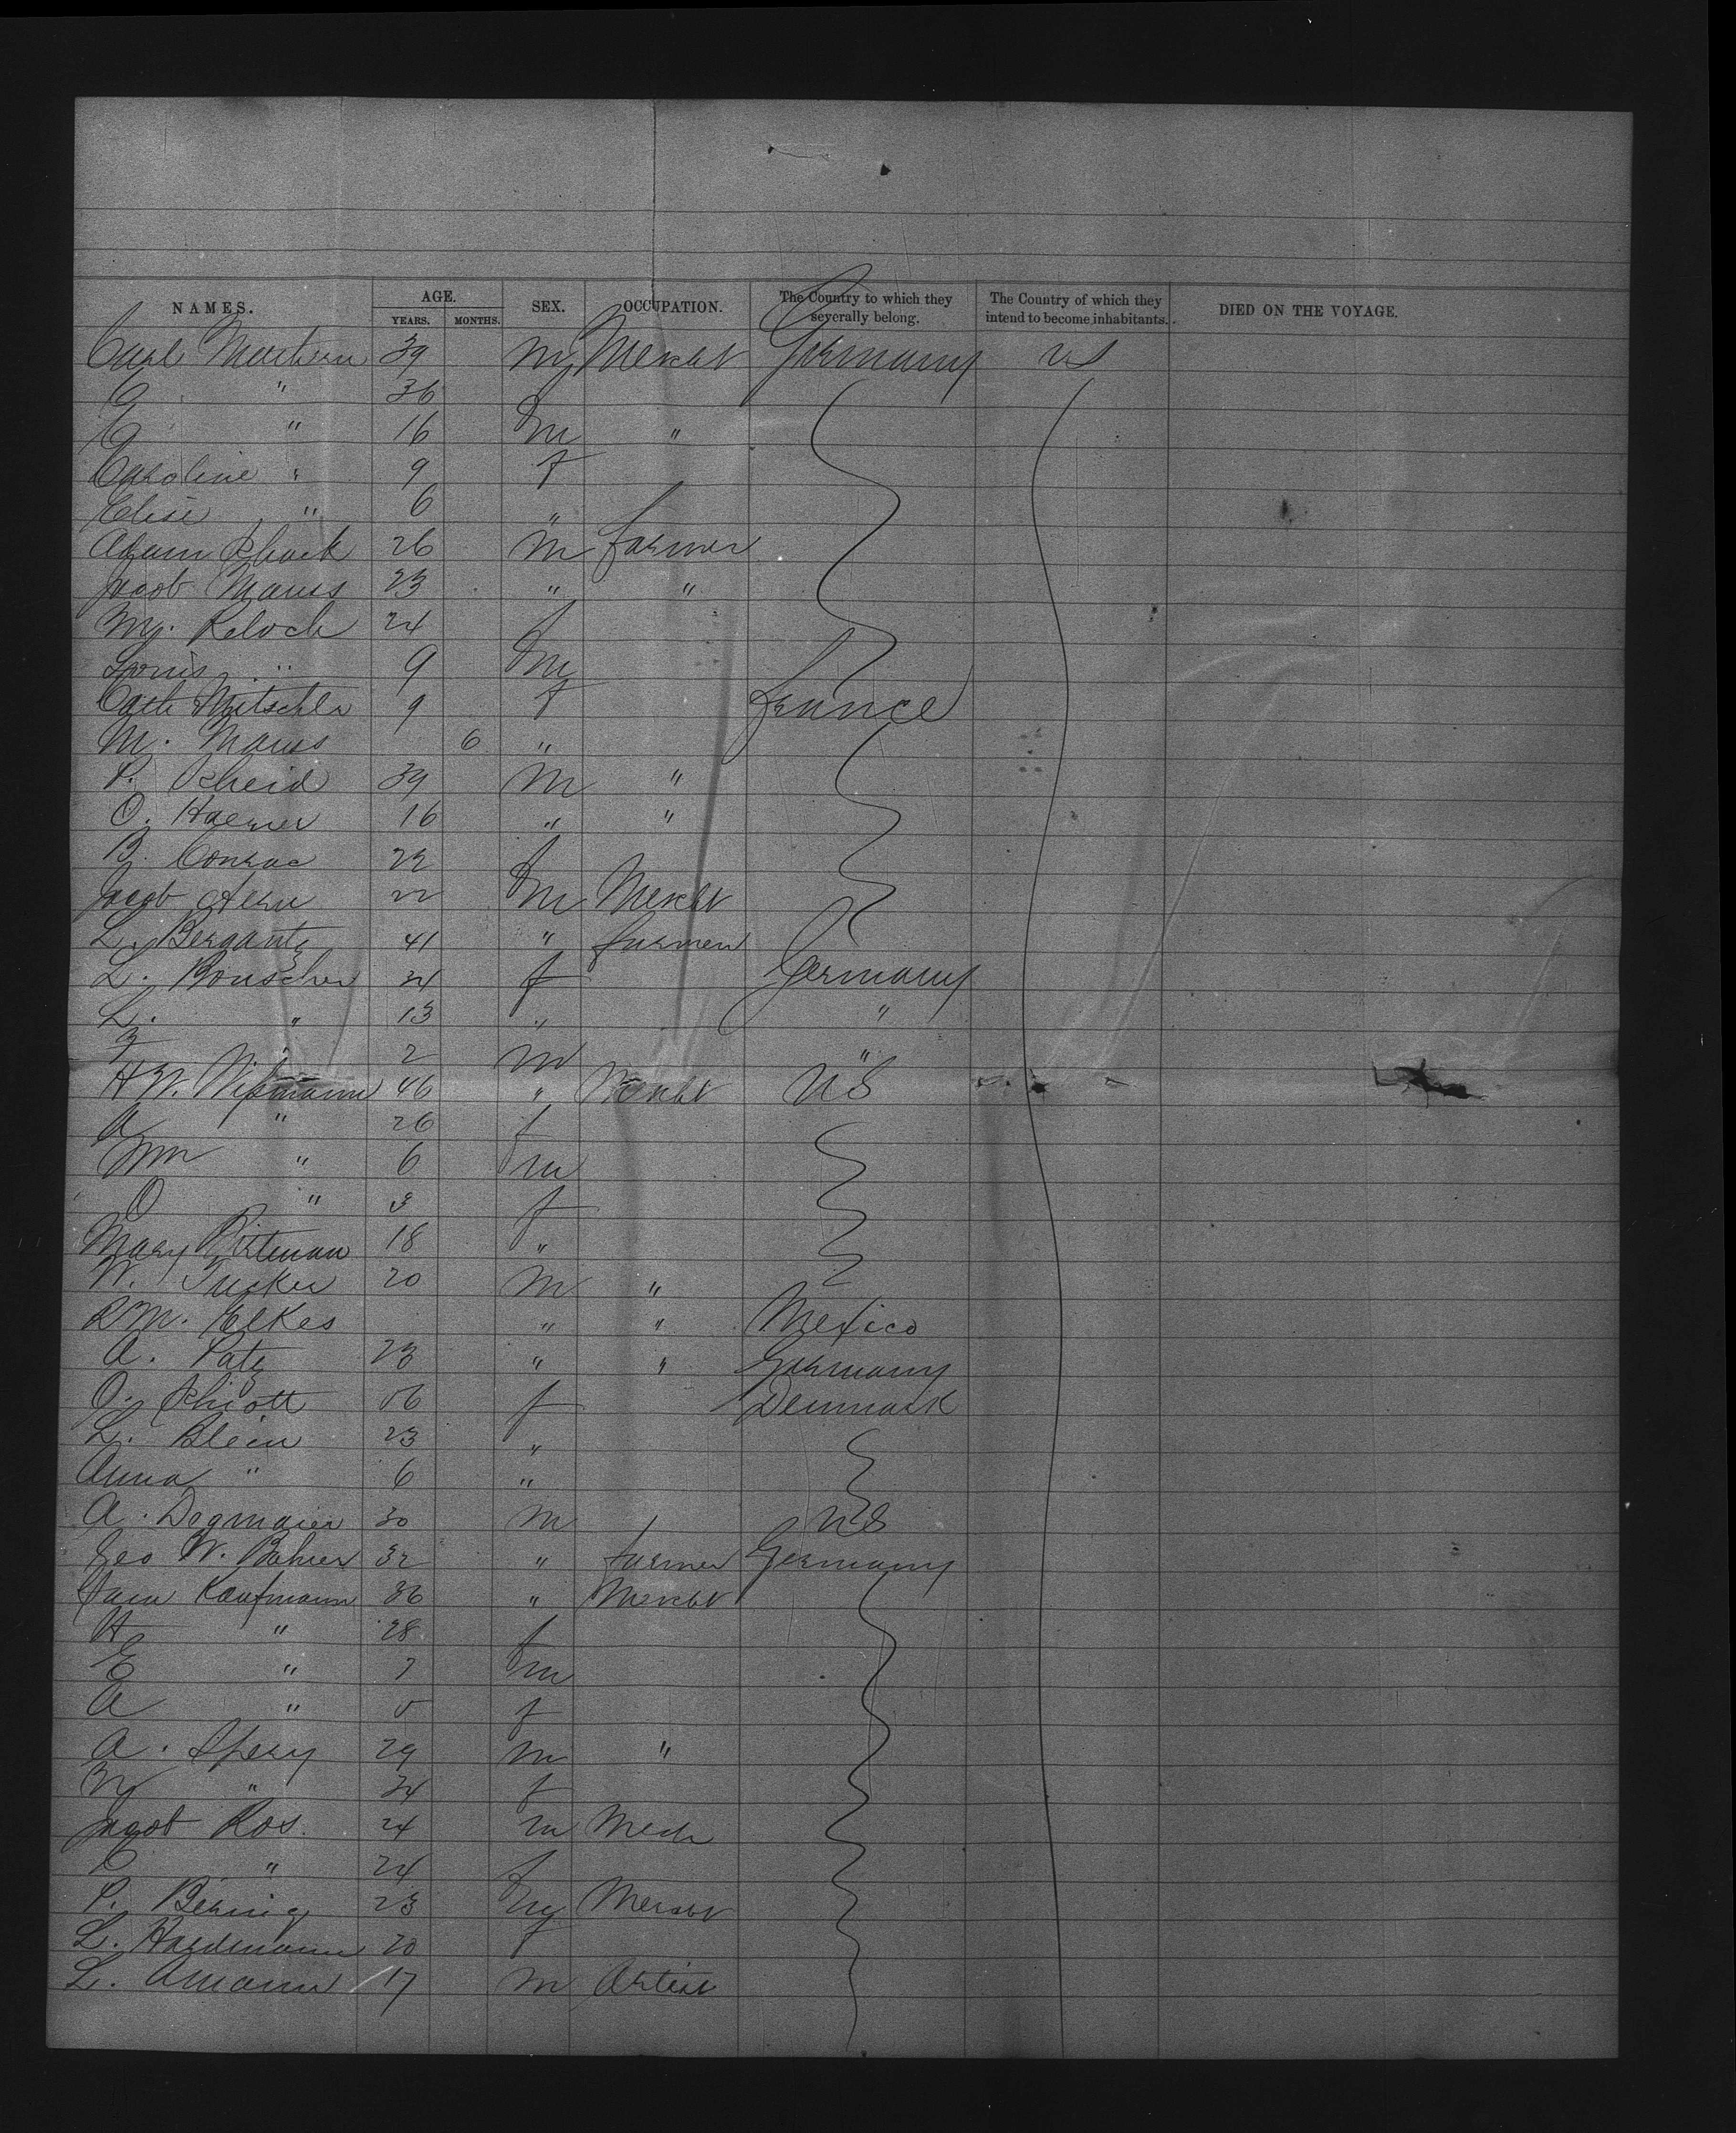 NAMES. AGE. SEX. OCCUPATION. The Country to which they severally belong. The Country of which they intend to become inhabitants. DIED ON THE VOYAGE.
YEARS. MONTHS.
Carl 39 m Mercht Germany US
C " 36
E " 16 m "
Caroline " 9 f
Elise " 6 "
Adam Schack 26 m farmer
Jacob Mauss 23 " "
My. Reloch 24 f
Louis " 9 m
Cath Mitschler 9 f France
M. Mauss 6 "
P. Scheid 39 m "
O. Haerner 16 " "
B. Conrac 22 f
Jacob Stern 22 m Mercht
L. Bergantz 41 " farmer
L. Bouscher 34 f Germany
L. " 13 " "
" 2 m "
H W. Wissmann 46 " Mercht US
A " 26 f
Wm " 6 m
O " 3 f
Mary 18 "
W. Tucker 20 m "
S M. Elkes " " Mexico
A. Patz 23 " " Germany
O. Schiott 56 f Denmark
L. Blein 23 "
Anna " 6 "
A. Dogmaier 30 m US
Geo W. Bahrer 32 " farmer Germany
Kaufmann 36 " Mercht
H " 28 f
E " 7 m
A " 5 f
A. Spery 29 m "
M " 34 f
Jacob Ros. 24 m Mech
C " 24 f
P. Bering 23 m Mercht
L. Hardemann 20 f
L. Amann 17 m Artist